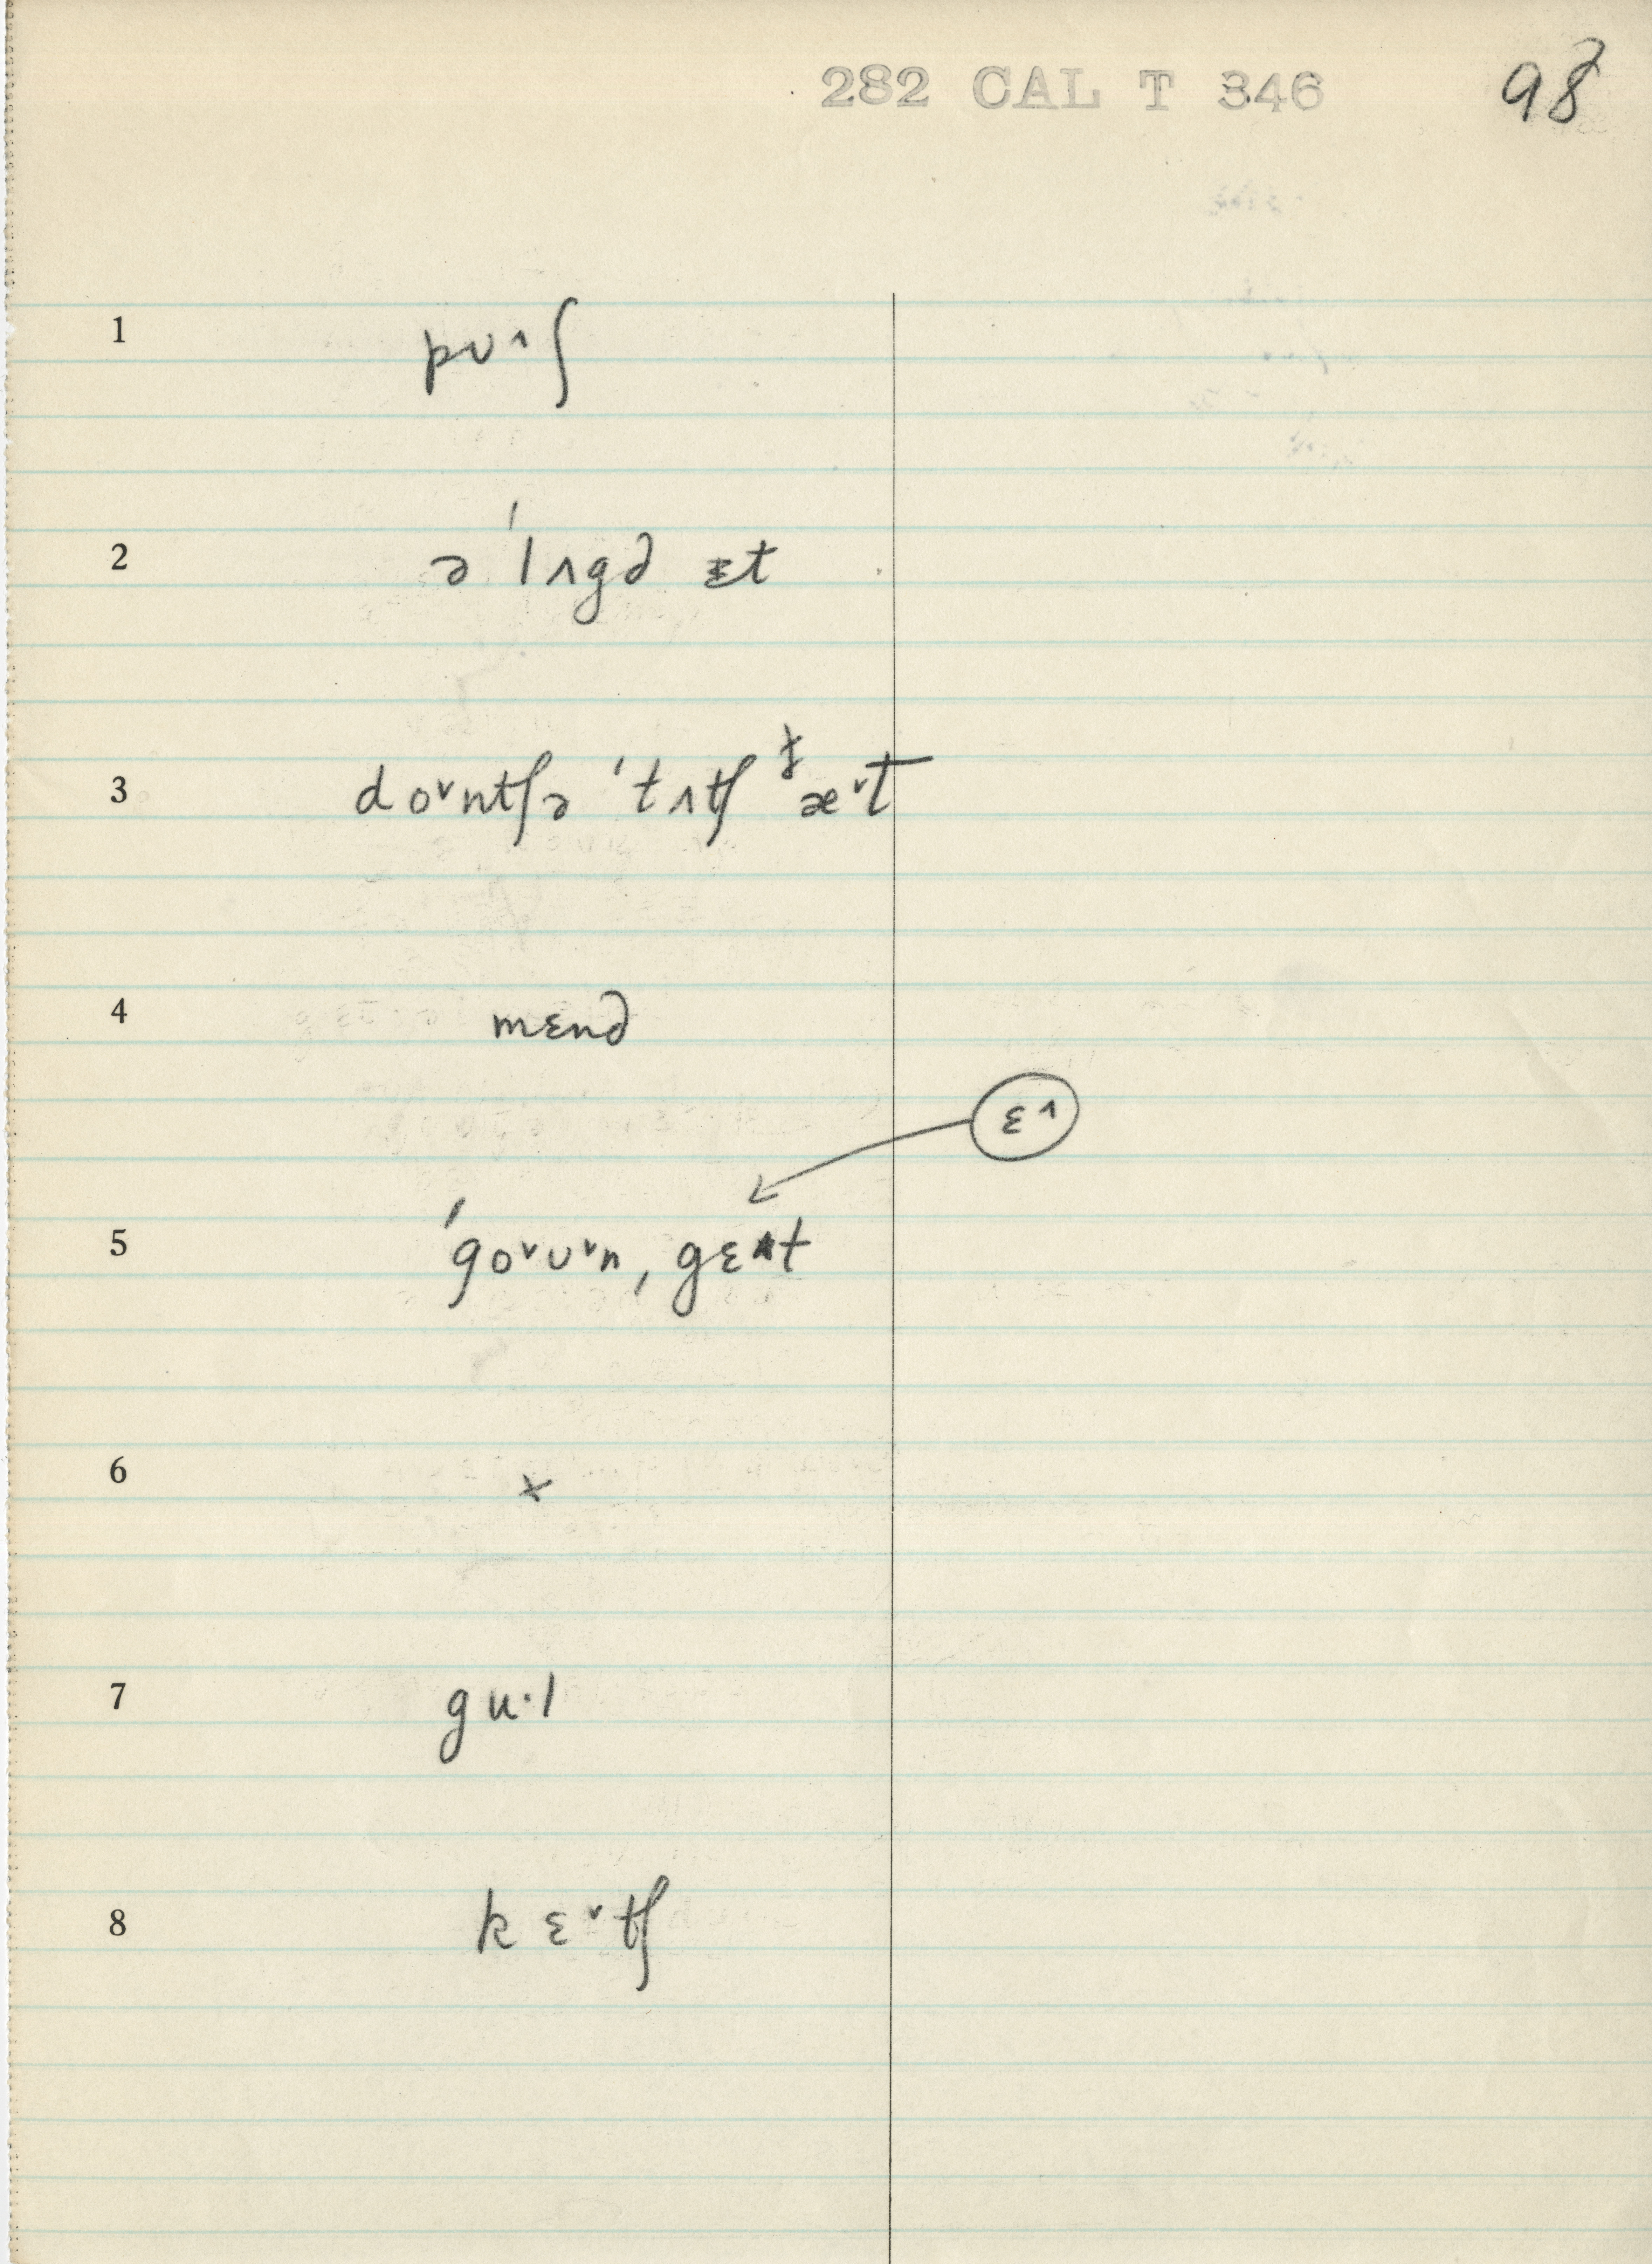 282 CAL T 346 98
1 pʊ˄ʃ
2 ə ˈlʌgd ɪt
3 do˅ntʃə ˈtʌtʃ ðæ˅t
4 mend
ɛ˄
5 ˈgo˅ʊ˅n, gɛt
6 x
7 gu·l
8 kɛ˅tʃ